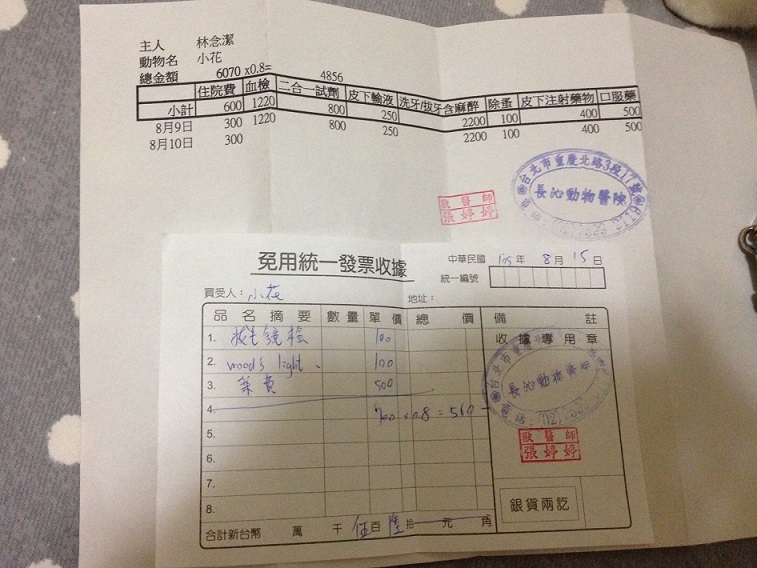 主人 林念潔
動物名 小花
總金額 6070 x0.8= 4856
住院費 血檢 二合一試劑 皮下輸液 洗牙/拔牙含麻醉 除蚤 皮下注射藥物 口服藥
小計 600 1220 800 250 2200 100 400 500
8月9日 300 1220 800 250 2200 100 400 500
8月10日 300
台北市重慶北路3段17號
長沁動物醫院
獸醫師
張婷婷
免用統一發票收據
中華民國 105年 8月 15日
統一編號
買受人: 小花 地址:
品名摘要 數量 單價 總價 備註
1. 拔毛鏡檢 100 收據專用章
2. wood's light 100
3. 藥費 500
長沁動物醫院
4. 700 x 0.8 = 560
5.
獸醫師
張婷婷
6.
7.
8.
銀貨兩訖
合計新台幣 萬 千 伍百 陸拾 元 角